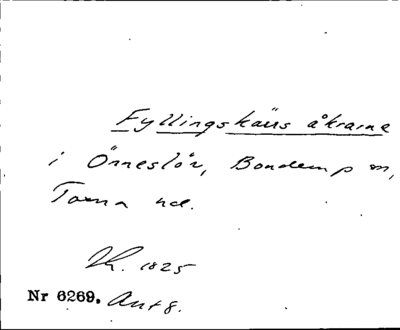 Fyllingskärrs åkrarna
i Örneslöv, Bonderup sn,
Torna hd.
Lh. 1825
Nr 6269. Ant 8.